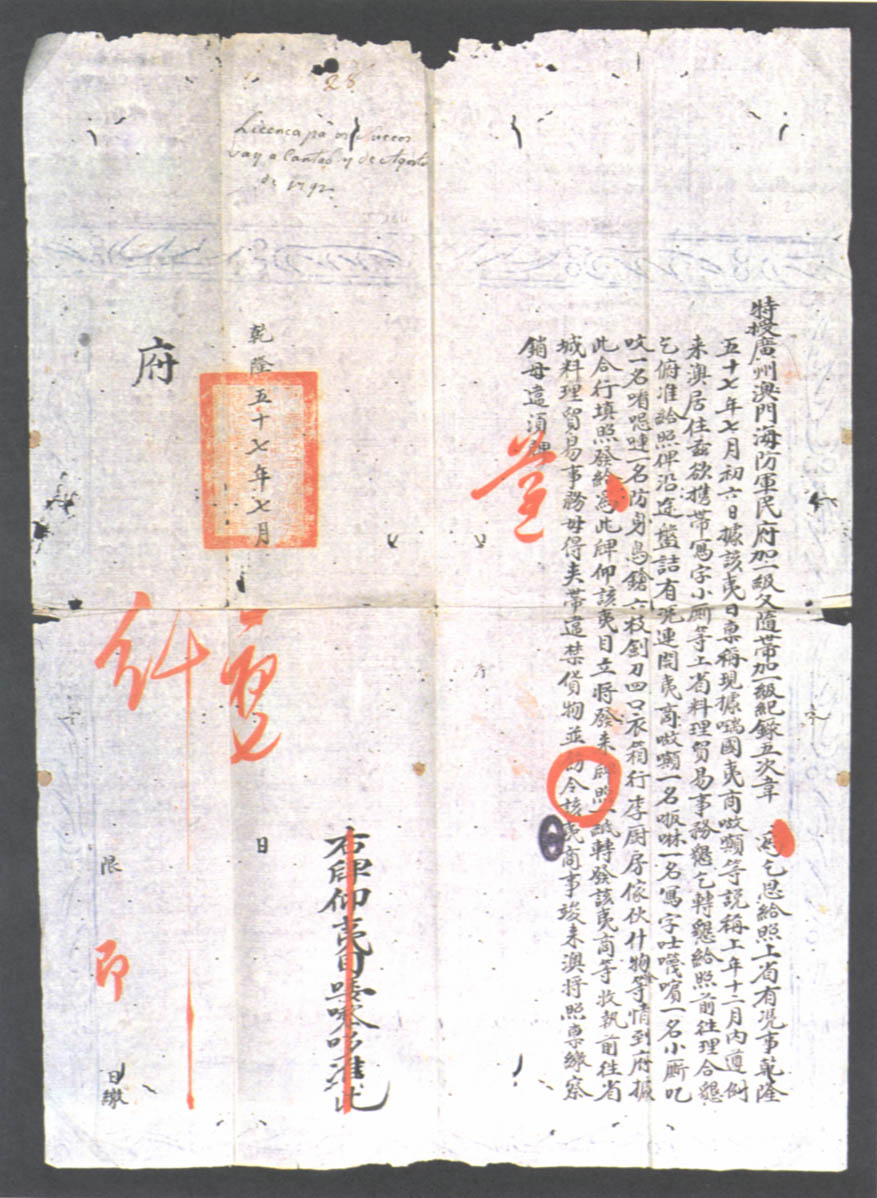 28
Licença pa os Suecos
van a Cantaõ
de 1792
特授廣州澳門海防軍民府加一級又隨帶加一級紀錄五次韋 爲乞恩給照上省有凴事乾隆
五十七年七月初六日據該夷目稟稱現據喘國夷商等説稱上年十二月內遵例
來澳居住茲欲携帶寫字小厮等上省料理貿易事務懇乞轉懇給照前往理合懇
乞俯准給照俾沿途盤詰有凴連開夷商一名一名寫字一名小厮吃
咬一名一名防身鳥鎗六枝劍刀四口衣箱行李厨房傢伙什物等情到府據
此合行填照發給爲此牌仰該夷目立將發來牌照一紙轉發該夷商等收執前往省
城料理貿易事務毋得夾帶違禁貨物並飭令該夷商事竣來澳將照稟繳察
銷毋違須牌
右牌仰夷目唩嚟哆准此
乾隆五十七年七月初七日
府
行
限 即 日繳